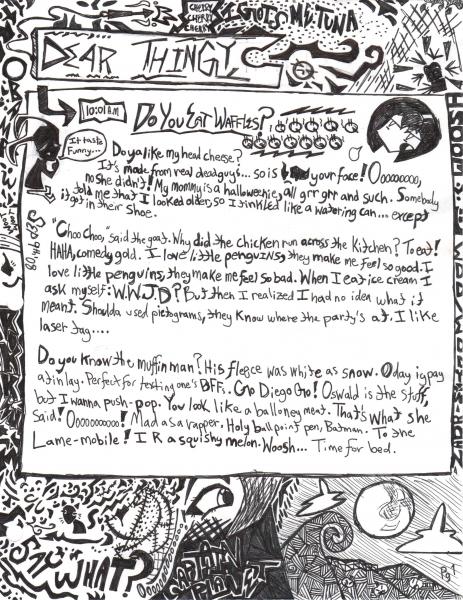 CHERRY
CHERRY
CHERRY
GOTSOMETUNA
DEAR THINGY,
10:01 A.M
Do You Eat Waffles?
It taste
Funny...
Do ya like my head cheese?
It's made from real dead guys... so is your face! Ooooooooo,
no She didn't! My mommy is a halloweenie, all grr grr and such. Somebody
told me that I looked older, so I tinkled like a watering can... except
I got in their Shoe.
"Choo Choo," said the goat. Why did the chicken run across the kitchen? To eat!
HAHA, comedy gold. I love little penguins, they make me feel so good. I
love little penguins, they make me feel so bad. When I eat ice cream I
ask myself: W.W.J.D? But then I realized I had no idea what it
meant. Shoulda used pictograms, they know where the party's at. I like
laser tag....
Do you know the muffin man? His fleece was white as snow. Oday igpay
atinlay. Perfect for texting one's BFFs. Go Diego Go! Oswald is the stuff,
but I wanna push-pop. You look like a balloney meat. That's What she
Said! Oooooooooo! Mad as a rapper, Holy ball point pen, Batman. To the
Lame-mobile! I R a squishy melon. Woosh... Time for bed.
SAY WHAT?
CAPTAIN
PLANET
Pg 1